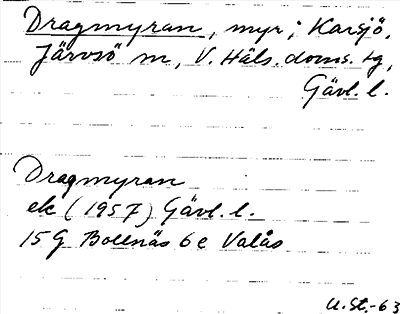 Dragmyran, myr; Karsjö,
Järvsö sn, V. Häls. doms. tg,
Gävl. l.
Dragmyran
ek (1957) Gävl. l.
15G Bollnäs 6e Valås
U. St.-63